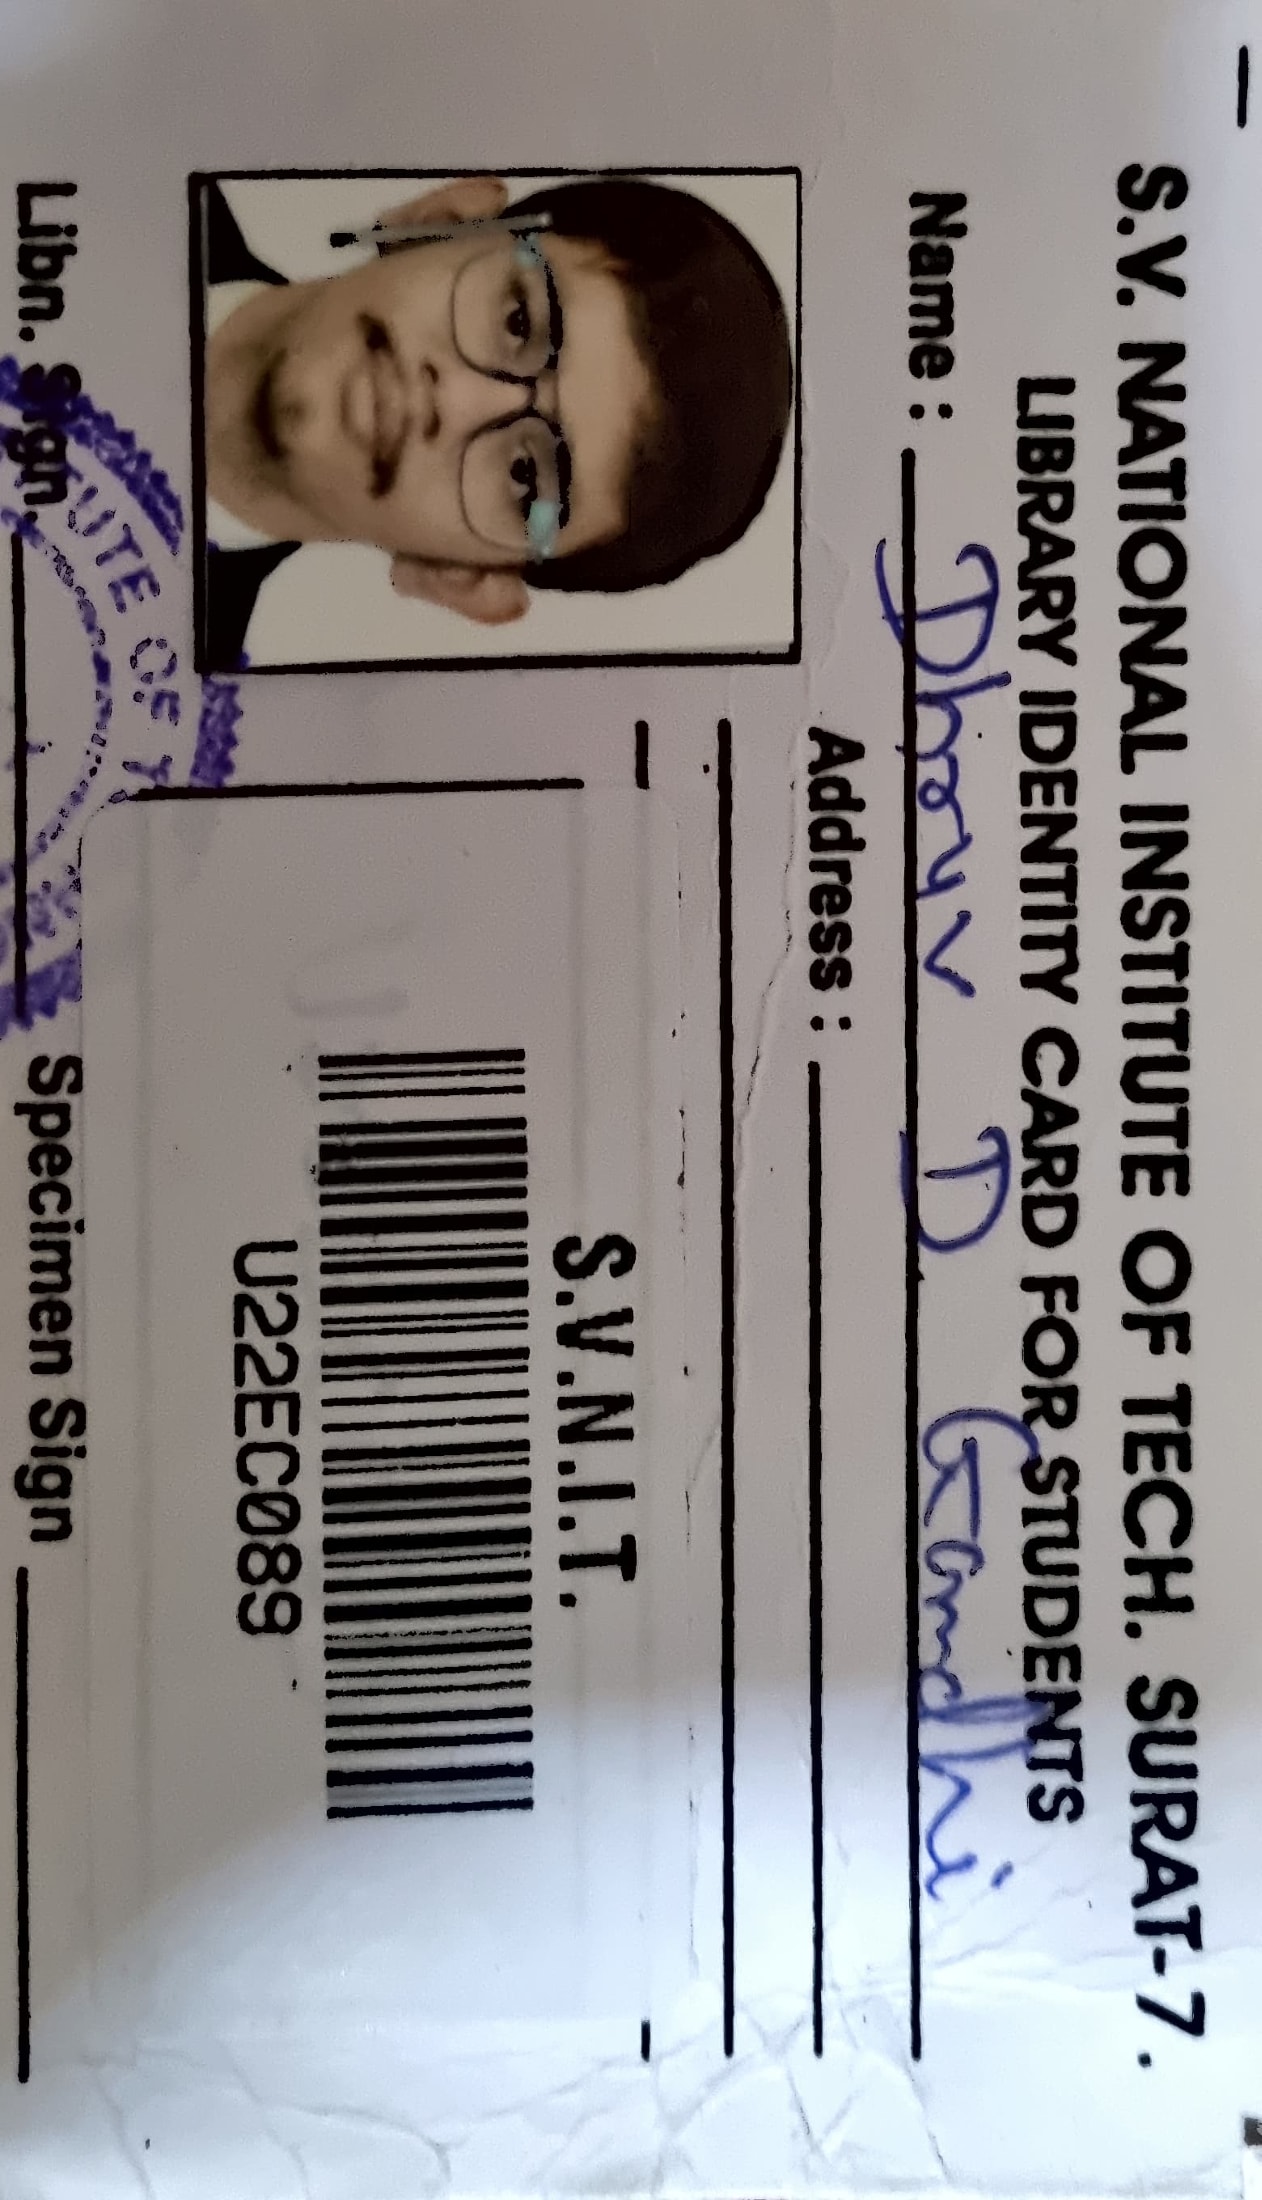 S.V. NATIONAL INSTITUTE OF TECH. SURAT-7.
LIBRARY IDENTITY CARD FOR STUDENTS
Name : Dhruv D. Gandhi
Address :
S.V.N.I.T.
U22EC089
Libn. Sign.
Specimen Sign
TUTE OF T